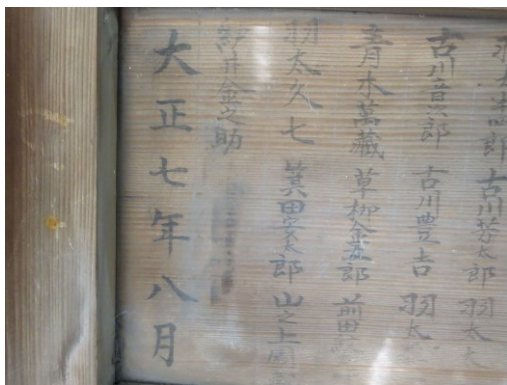 古川芳太郎 羽太
古川音次郎 古川豊吉 羽太
青木萬藏 草柳金五郎 前田
羽太久七 箕田安太郎 山之上
金之助
大正七年八月